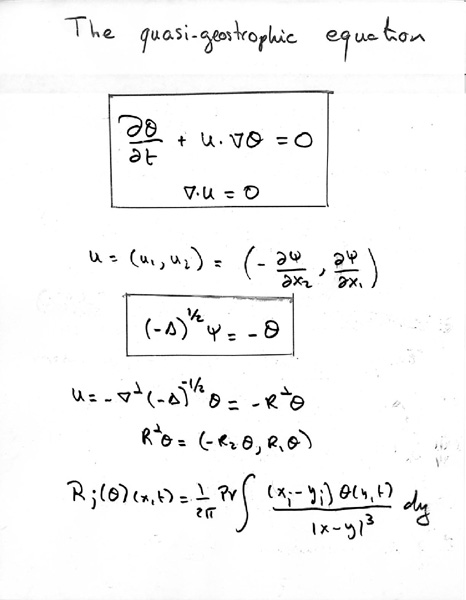 The quasi-geostrophic equation
∂θ/∂t + u·∇θ = 0
∇·u = 0
u = (u₁, u₂) = (-∂ψ/∂x₂, ∂ψ/∂x₁)
(-Δ)^{1/2} ψ = -θ
u = -∇^⊥(-Δ)^{-1/2} θ = -R^⊥θ
R^⊥θ = (-R₂θ, R₁θ)
Rⱼ(θ)(x,t) = 1/2π PV ∫ (xⱼ-yⱼ) θ(y,t)/|x-y|³ dy